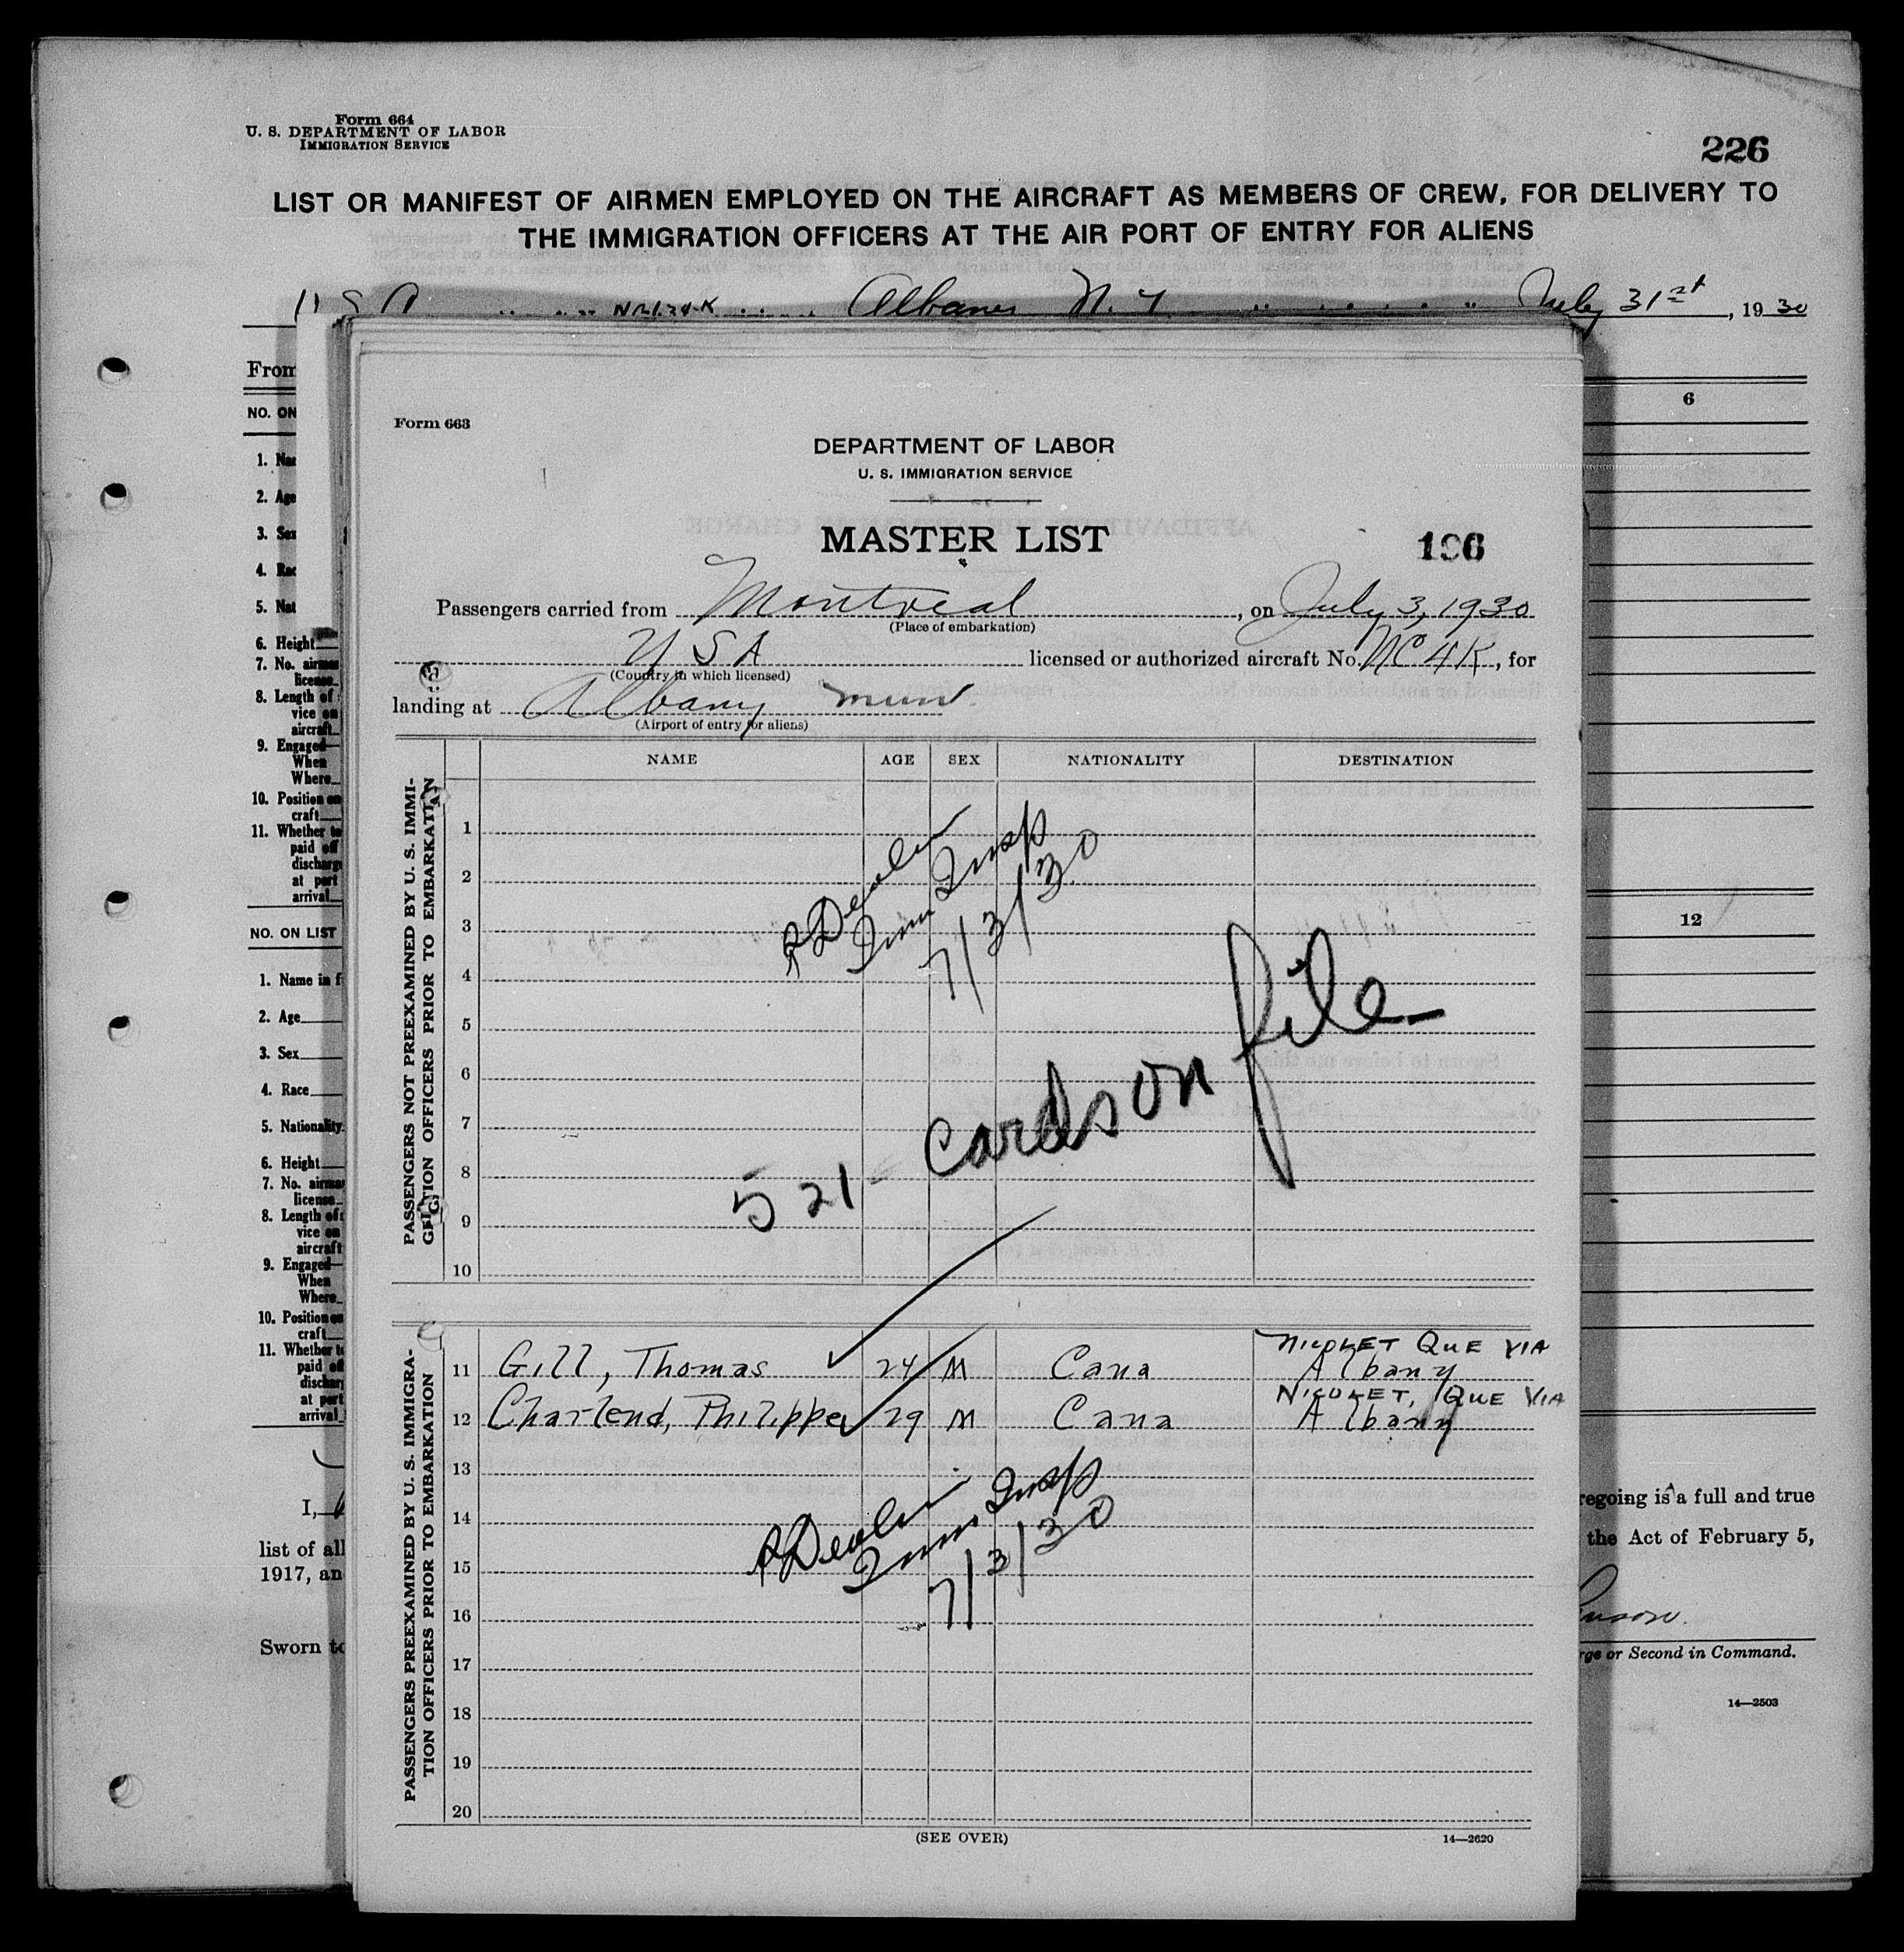 Form 664
U. S. DEPARTMENT OF LABOR
IMMIGRATION SERVICE
226
LIST OR MANIFEST OF AIRMEN EMPLOYED ON THE AIRCRAFT AS MEMBERS OF CREW, FOR DELIVERY TO
THE IMMIGRATION OFFICERS AT THE AIR PORT OF ENTRY FOR ALIENS
Albany N. Y. July 31st, 1930
From
NO. ON
6
1. Na
2. Age
3. Sex
4. Rac
5. Nat
6. Height
7. No. airmen
license
8. Length of
vice on
aircraft
9. Engaged—
When
Where
10. Position on
craft
11. Whether to
paid off
discharge
at port
arrival
NO. ON LIST
12
1. Name in f
2. Age
3. Sex
4. Race
5. Nationality
6. Height
7. No. airma
license
8. Length of
vice on
aircraft
9. Engaged—
When
Where
10. Position on
craft
11. Whether to
paid off
dischar
at port
arrival
I,
regoing is a full and true
list of all
the Act of February 5,
1917, an
Sworn to
rge or Second in Command.
14—2503
Form 663
DEPARTMENT OF LABOR
U. S. IMMIGRATION SERVICE
MASTER LIST
196
Passengers carried from Montreal, on July 3, 1930
(Place of embarkation)
USA licensed or authorized aircraft No. NC 4K, for
(Country in which licensed)
landing at Albany
(Airport of entry for aliens)
NAME AGE SEX NATIONALITY DESTINATION
PASSENGERS NOT PREEXAMINED BY U. S. IMMI-
GRATION OFFICERS PRIOR TO EMBARKATION
1
2
3
4
5
6
7
8
9
10
R Devlin
Imm Insp
7/3/30
521 - cards on file
PASSENGERS PREEXAMINED BY U. S. IMMIGRA-
TION OFFICERS PRIOR TO EMBARKATION
NICOLET QUE VIA
11 Gill, Thomas 24 M Cana Albany
NICOLET, QUE VIA
12 Charlend, Philippe 29 M Cana Albany
13
14
15
16
17
18
19
20
R Devlin
Imm Insp
7/3/30
(SEE OVER)
14—2620